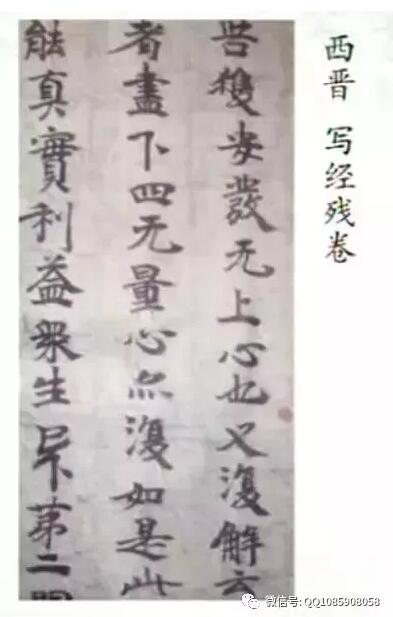 西晋 写经残卷
獲安發无上心也又復解
者盡下四无量心亦復如是此
能真實利益衆生下第二
微信号: QQ1085908058